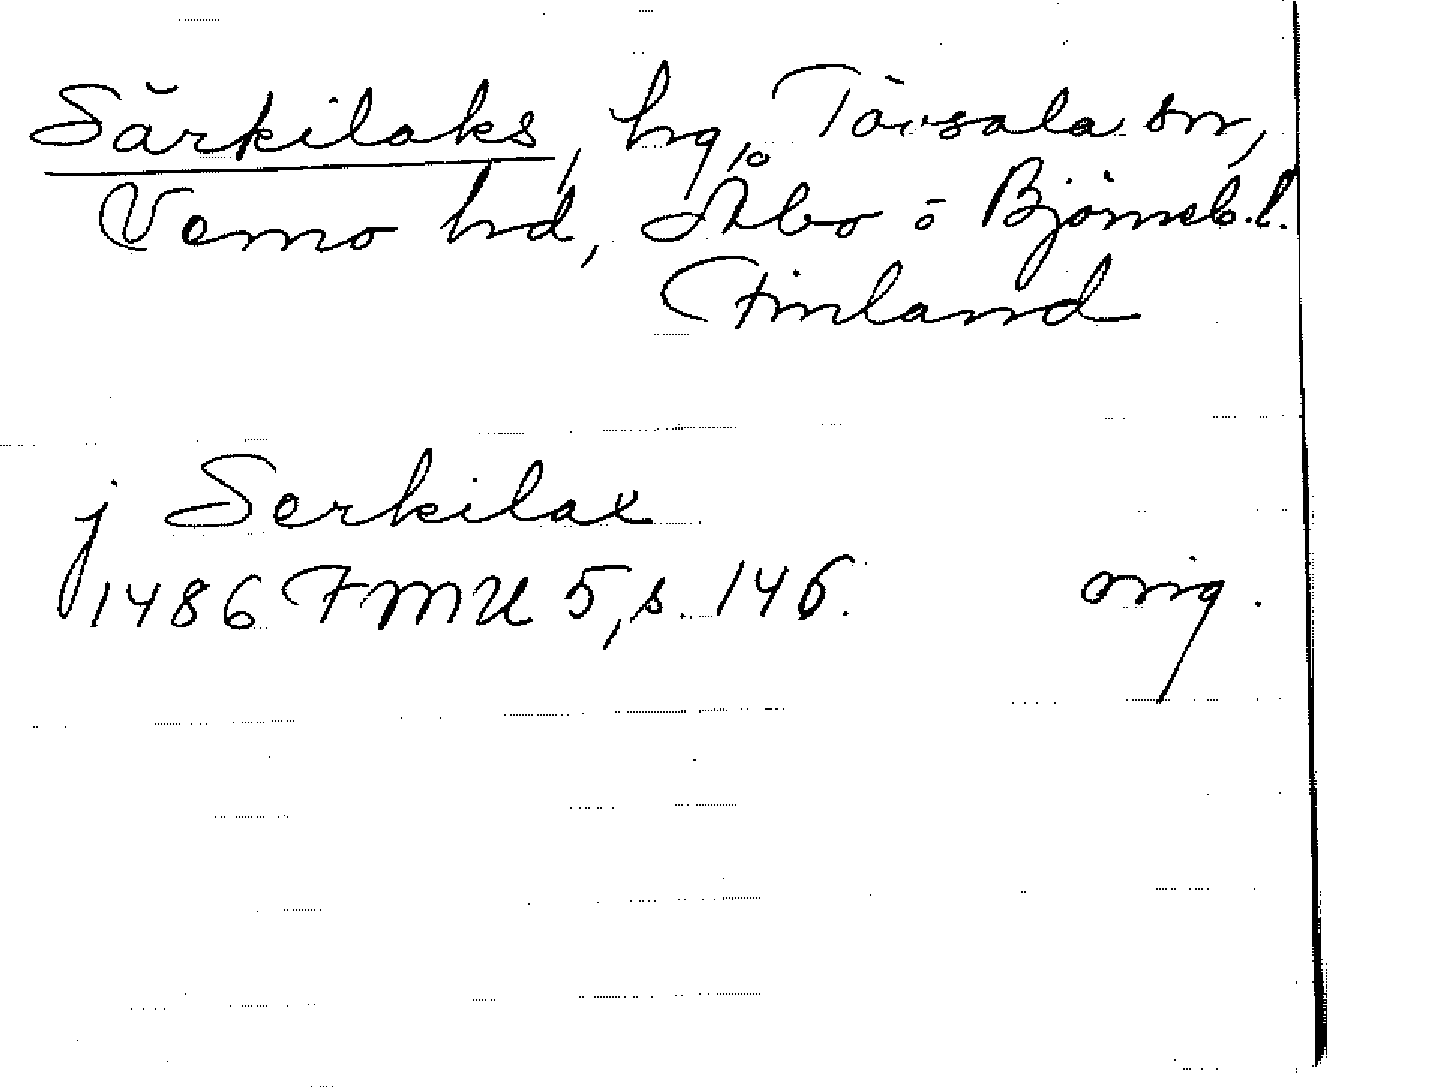 Särkilaks, hg, Tövsala sn,
Vemo hd, Åbo o Björneb. l.
Finland
j Serkilax
1486 FMU 5, s. 146. orig.